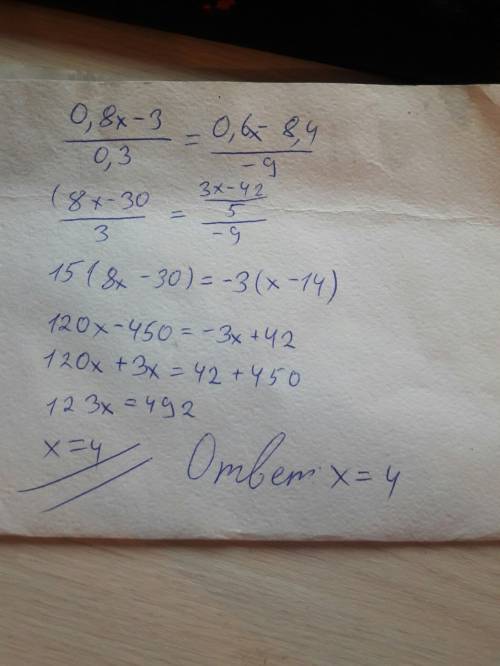 0,8x-3 / 0,3 = 0,6x- 8,4 / -9
(8x-30 / 3 = 3x-42 / 5 / -9
15(8x -30)=-3(x-14)
120x-450=-3x+42
120x+3x=42+450
123x=492
x=4
Ответ: x=4